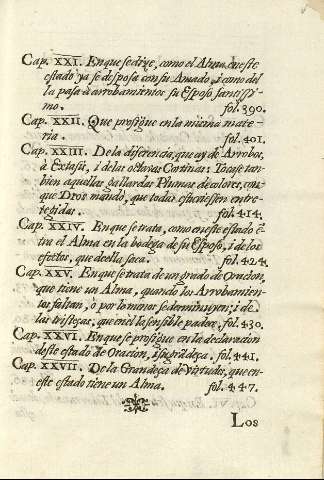 Cap. XXI. En que se dize, como el Alma en este
estado ya se desposa con su Amado, i como del
la pasa à arrobamientos su Esposo santissi-
mo. fol. 390.
Cap. XXII. Que prosigue en la misma mate-
ria. fol. 401.
Cap. XXIII. De la diferencia, que ay de Arrobos,
à Extasis, i de las octavas Cortinas: Tocase tan-
bien aquellas gallardas Plumas de colores, con
que Dios mandò, que todas estuviessen entre-
texidas. fol. 414.
Cap. XXIV. En que se trata, como en este estado ē-
tra el Alma en la bodega de su Esposo, i de los
efectos, que de ella saca. fol. 424.
Cap. XXV. En que se trata de un grado de Oracion,
que tiene un Alma, quando los Arrobamien-
tos faltan, ò por lo menos se derminuyen; i de
las tristezas, que en el la sensible padece. fol. 430.
Cap. XXVI. En que se prosigue en la declaracion
deste estado de Oracion, i su grādeça. fol. 441.
Cap. XXVII. De la Grandeça de Virtudes, que en
este estado tiene un Alma. fol. 447.
Los